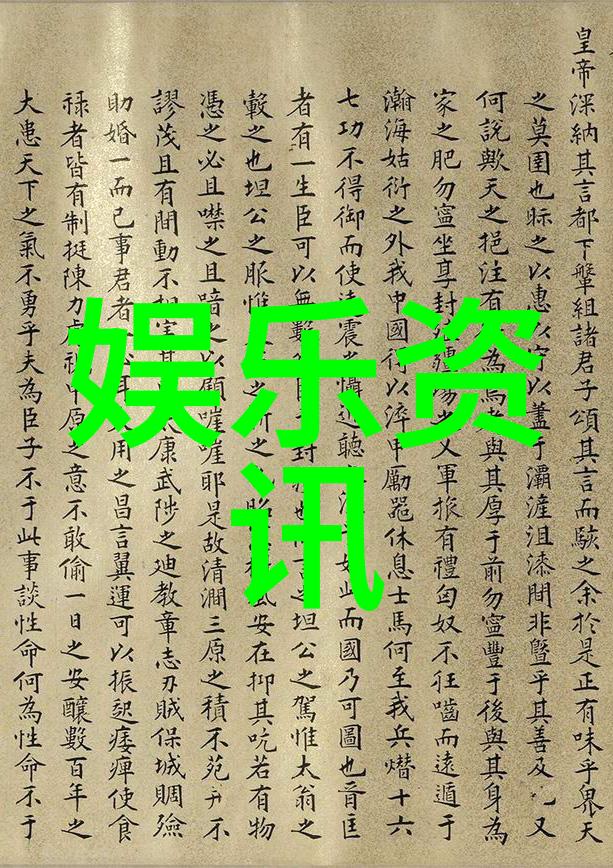 娱乐资
讯
皇帝深納其言都下犖組諸君子頌其言而駭之余於是正有味乎畀天
之莫圉也眎之以惠以守以蓋于灞滻沮漆閒非曁乎其善及又
何說歟天之挹注有為焉與其厚于前勿寧豐于後與其身為
家之肥勿寧坐享封疆場之又軍旅有禮匈奴不狂嚙而遠遁于
瀚海姑衍之外我中國得以淬甲勵器休息士馬何至我兵熸十六
七功不得御而使遠震懾聽如此而國乃可圖也晉匡
者有一生臣可以無艱坦公之駕惟太翁之
轂之也坦公之服惟之所之安在抑其吭若有物
憑之必且噤之且喑之以顧嗟嗟耶是故清澗三原之積不苑不
謬茂且有間動不相害其康武陟之廸教章志刃賊保城賙殮
助婚一而已事君者用之昌言翼運可以振起痿痺使食
祿者皆有制挺陳力中原之意不敢偷一日之安釀數百年之
大患天下之氣不勇乎夫為臣子不于此事談性命何為性命不于